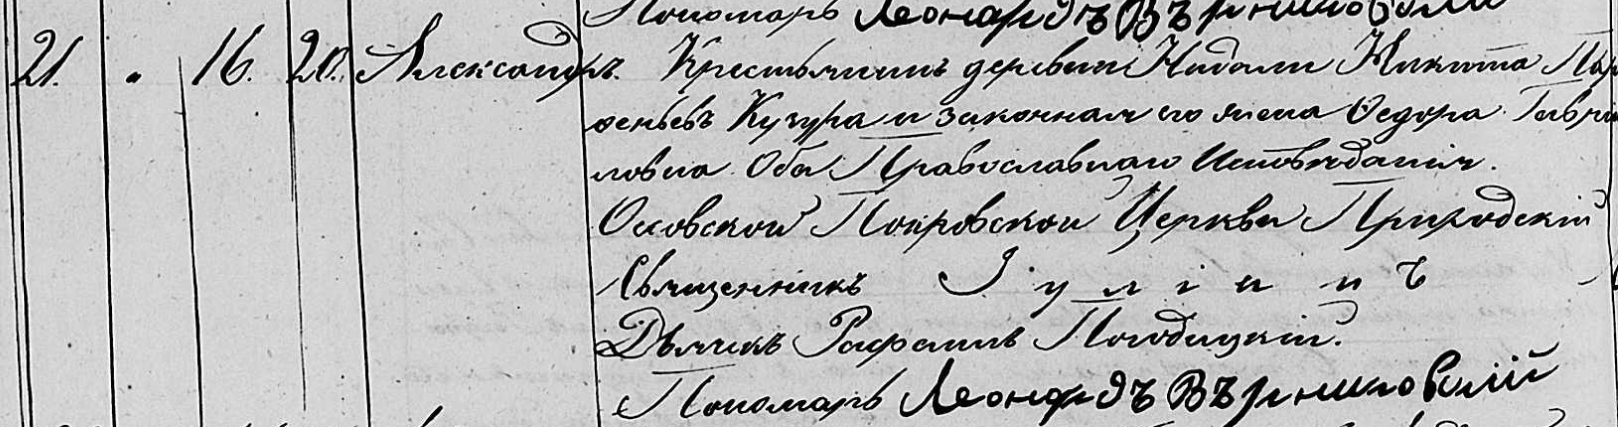 Пономарь Леонардъ Вѣрниковскій
21. " 16. 20. Александръ. Крестьянинъ деревни Нидали Никита Пар
ѳеньевъ Кучура и законная его жена Ѳедора Гаври
ловна Оба Православнаго Исповѣданія.
Осовской Покровской Церкви Приходскій
Священникъ Іуліанъ
Дьячекъ Рафаилъ
Пономарь Леонардъ Вѣрниковскій